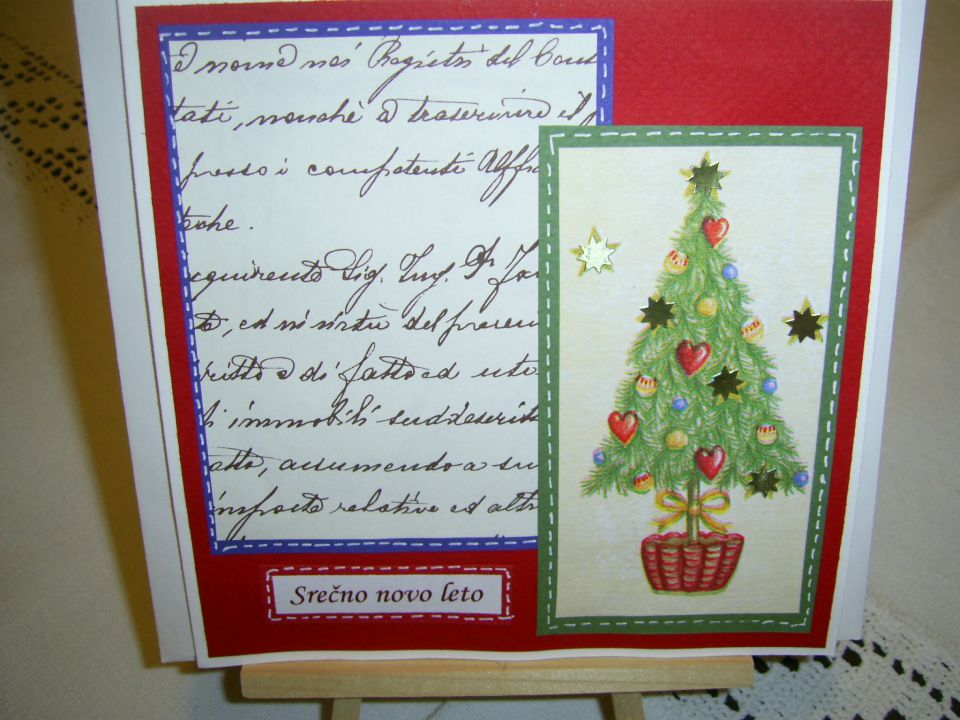 e nome nei Registri del Cons
tati, nonchè a trascrivere il
presso i competenti Uffi
teche.
cquirente Sig. Ing.
to, ed in virtù del presen
ritto e di fatto ed
li immobili suddescritt
atto, assumendo a su
imposte relative ed altr
Srečno novo leto